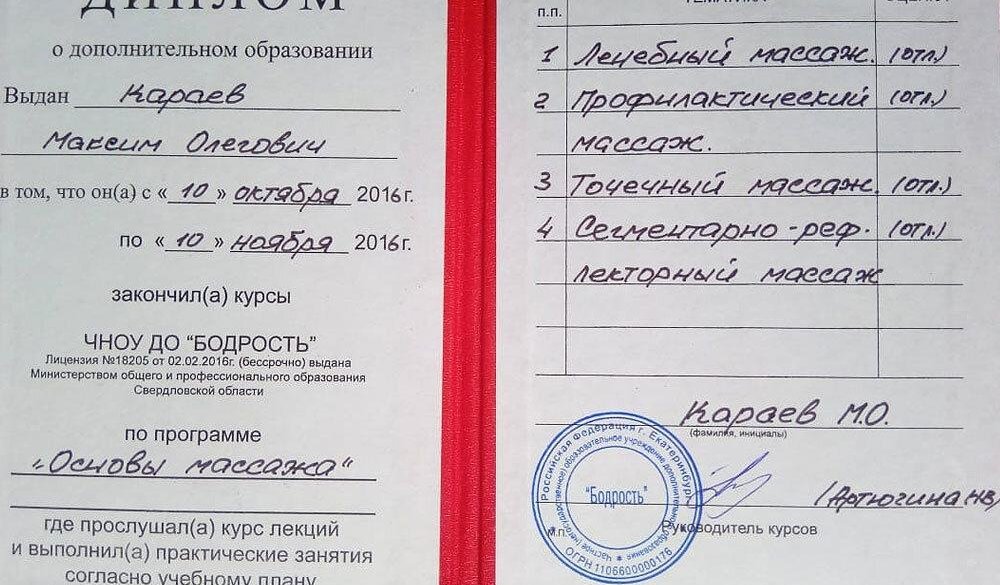 ДИПЛОМ
о дополнительном образовании
Выдан Караев
Максим Олегович
в том, что он(а) с «10» октября 2016г.
по «10» ноября 2016г.
закончил(а) курсы
ЧНОУ ДО “БОДРОСТЬ”
Лицензия №18205 от 02.02.2016г. (бессрочно) выдана
Министерством общего и профессионального образования
Свердловской области
по программе
„Основы массажа“
где прослушал(а) курс лекций
и выполнил(а) практические занятия
согласно учебному плану
п.п. ТЕМАТИКА ОЦЕНКА
1 Лечебный массаж. (отл.)
2 Профилактический (отл.)
массаж.
3 Точечный массаж. (отл.)
4 Сегментарно-реф- (отл.)
лекторный массаж
Караев М.О.
(фамилия, инициалы)
Российская Федерация г. Екатеринбург
Частное (негосударственное) образовательное учреждение дополнительного образования
“Бодрость”
ОГРН 1106600000176
(Артюгина НВ)
м.п. Руководитель курсов